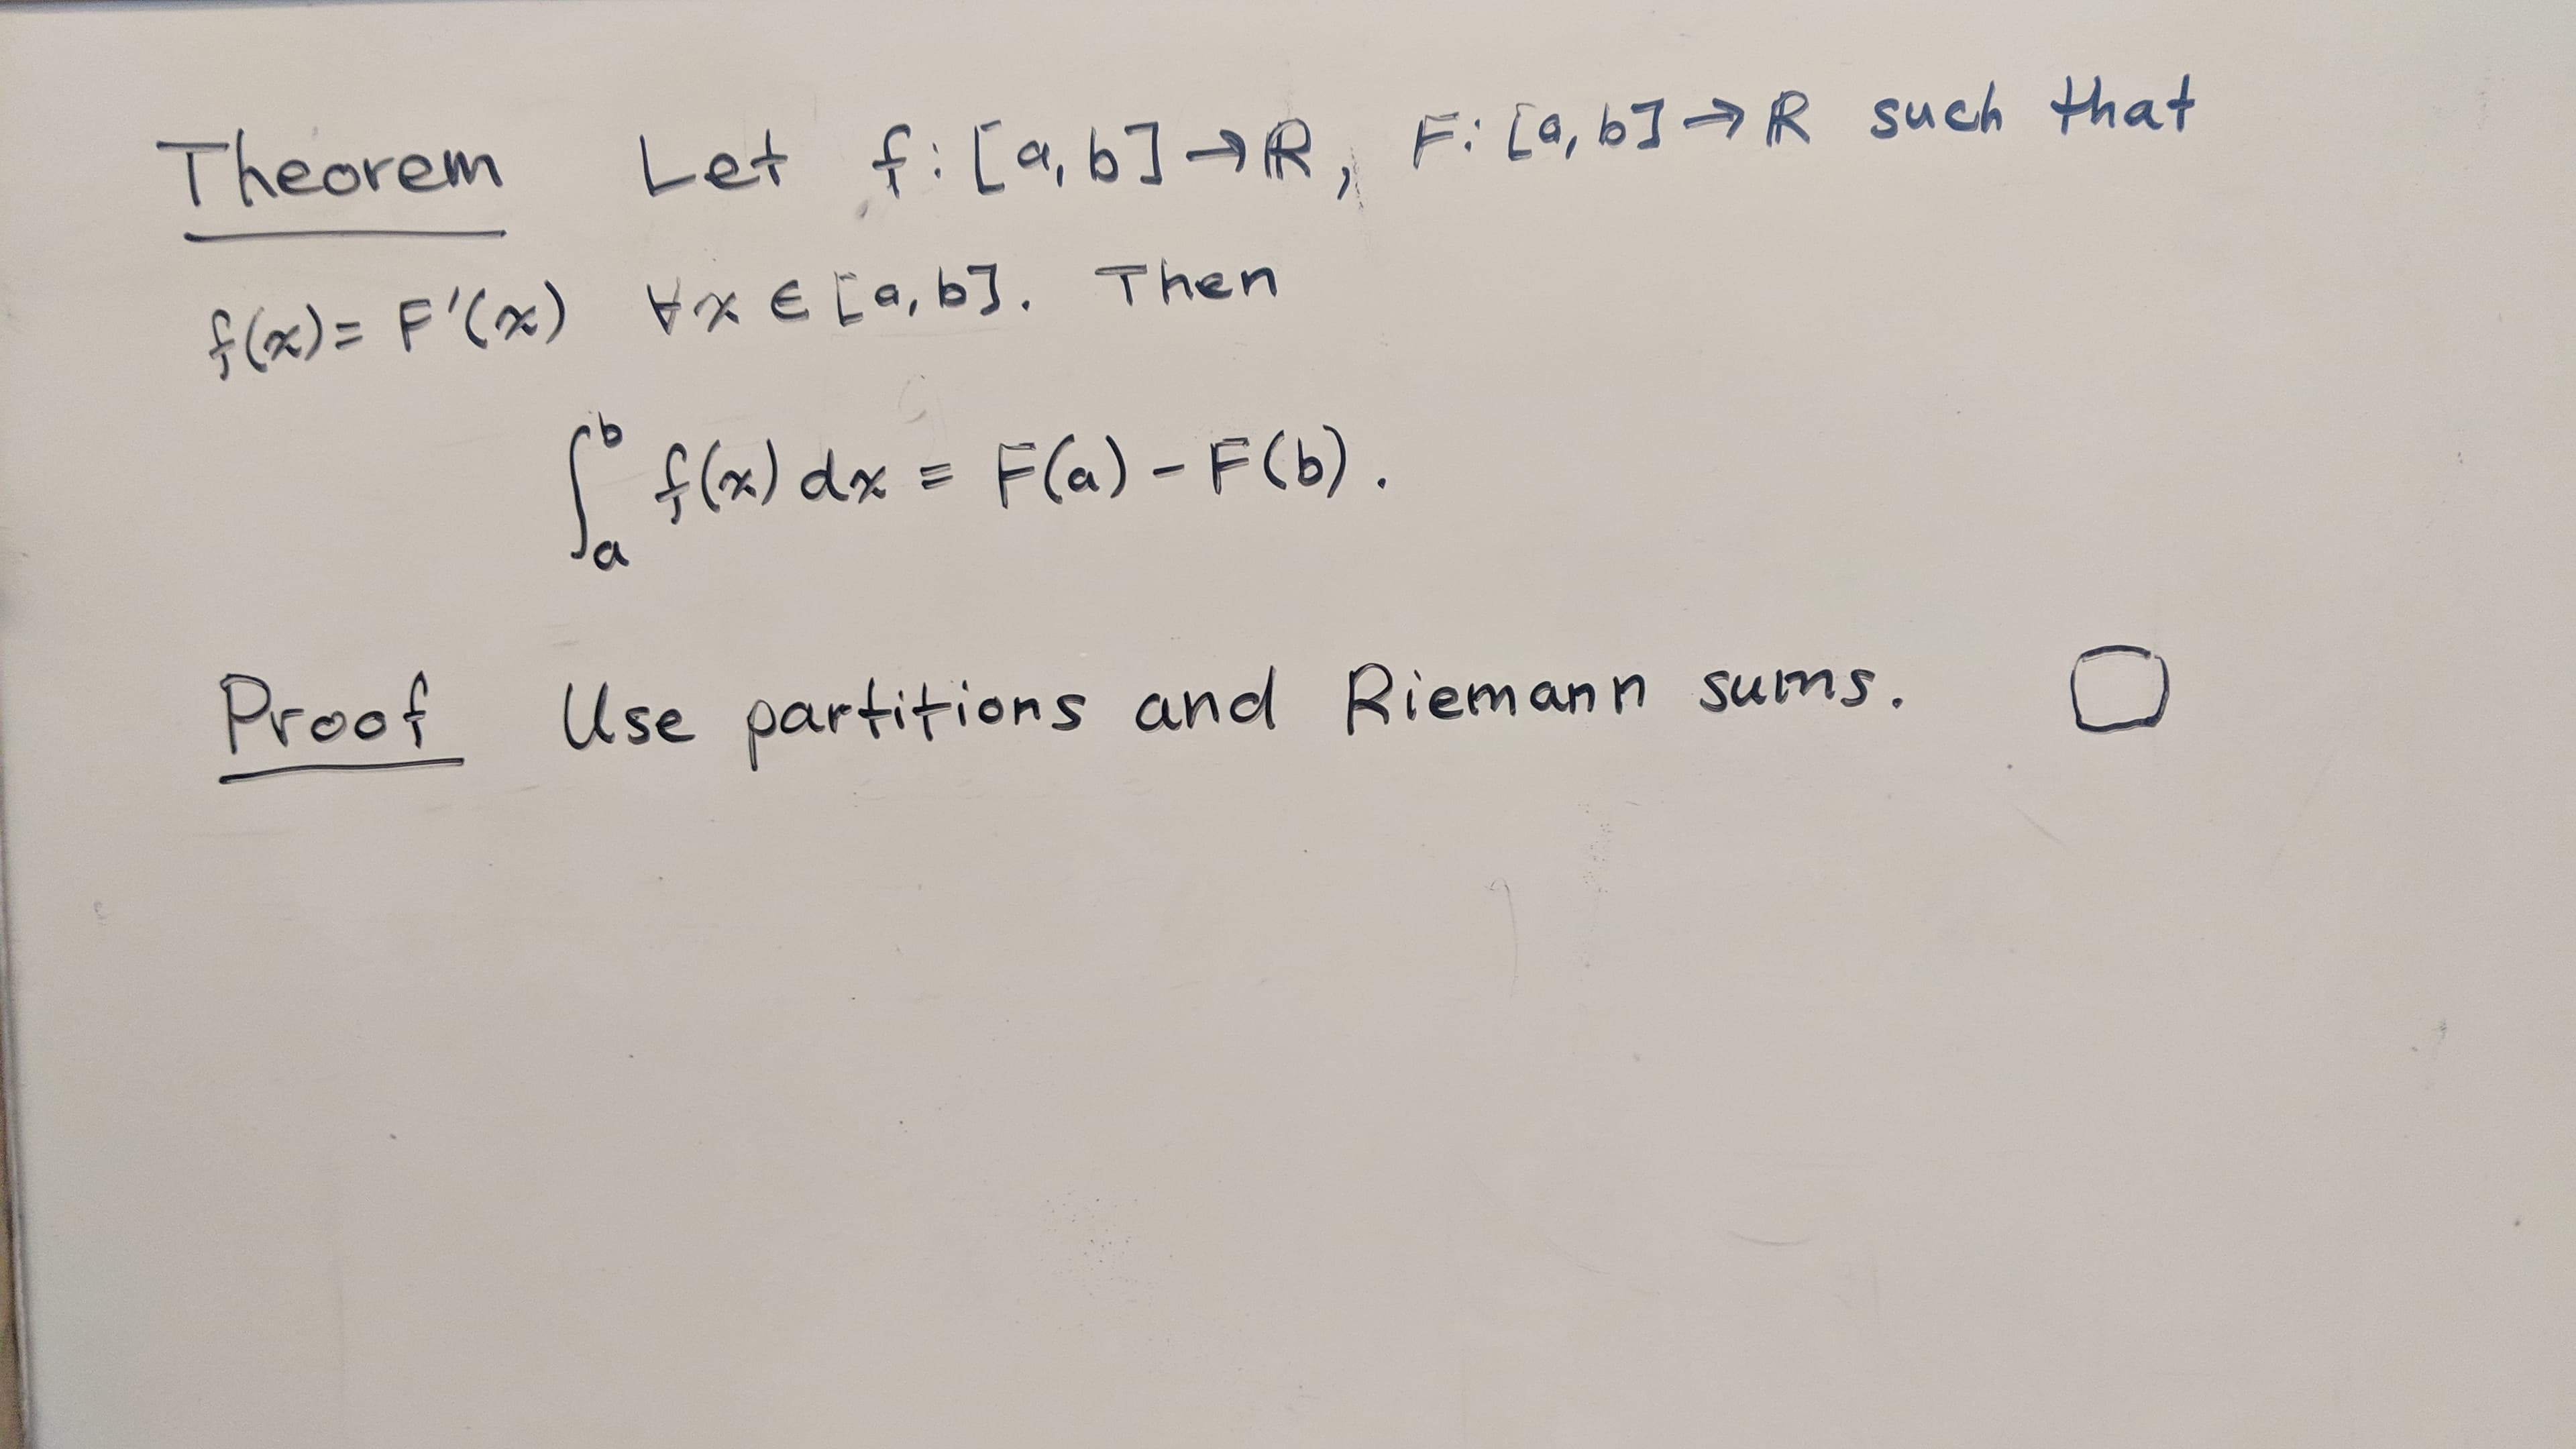 Theorem Let f: [a, b] → ℝ, F: [a, b] → ℝ such that
f(x) = F'(x) ∀x ∈ [a, b]. Then
∫_a^b f(x) dx = F(a) - F(b).
Proof Use partitions and Riemann sums. □